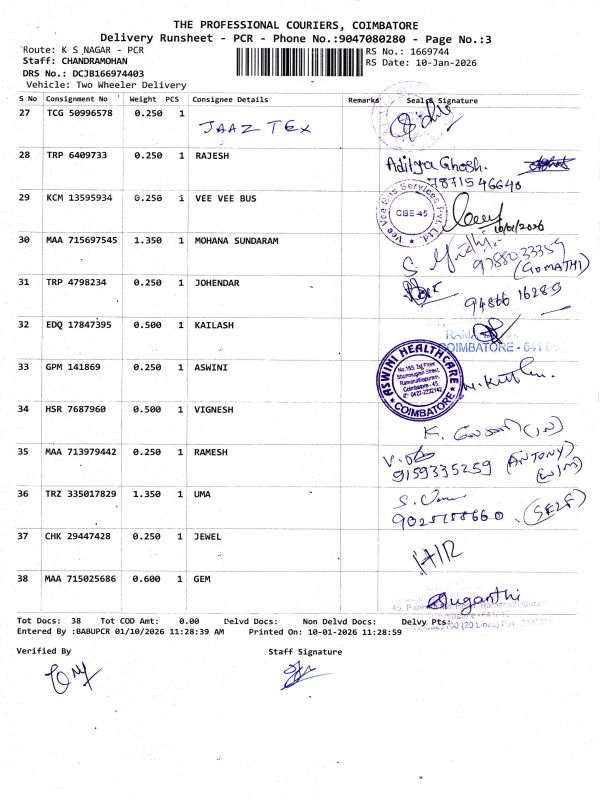 THE PROFESSIONAL COURIERS, COIMBATORE
Delivery Runsheet - PCR - Phone No.:9047080280 - Page No.:3
Route: K S NAGAR - PCR
RS No.: 1669744
Staff: CHANDRAMOHAN
RS Date: 10-Jan-2026
DRS No.: DCJB166974403
Vehicle: Two Wheeler Delivery
S No Consignment No Weight PCS Consignee Details Remarks Seal & Signature
27 TCG 50996578 0.250 1 JAAZ TEX
28 TRP 6409733 0.250 1 RAJESH Aditya Ghosh.
7871546640
29 KCM 13595934 0.250 1 VEE VEE BUS Vee Vee Bus Services Pvt. Ltd. CBE-45
10/01/2026
30 MAA 715697545 1.350 1 MOHANA SUNDARAM
9788033359
(GOMATHI)
31 TRP 4798234 0.250 1 JOHENDAR 94866 16289
32 EDQ 17847395 0.500 1 KAILASH
COIMBATORE - 641
33 GPM 141869 0.250 1 ASWINI ASWINI HEALTHCARE
No.195, 1st Floor
Ramanathapuram,
Coimbatore - 45.
COIMBATORE
34 HSR 7687960 0.500 1 VIGNESH
35 MAA 713979442 0.250 1 RAMESH (ANTONY)
9159335259
36 TRZ 335017829 1.350 1 UMA S. Uma
(SELF)
37 CHK 29447428 0.250 1 JEWEL
38 MAA 715025686 0.600 1 GEM Suganthi
Tot Docs: 38 Tot COD Amt: 0.00 Delvd Docs: Non Delvd Docs: Delvy Pts:
Entered By :BABUPCR 01/10/2026 11:28:39 AM Printed On: 10-01-2026 11:28:59
Verified By Staff Signature